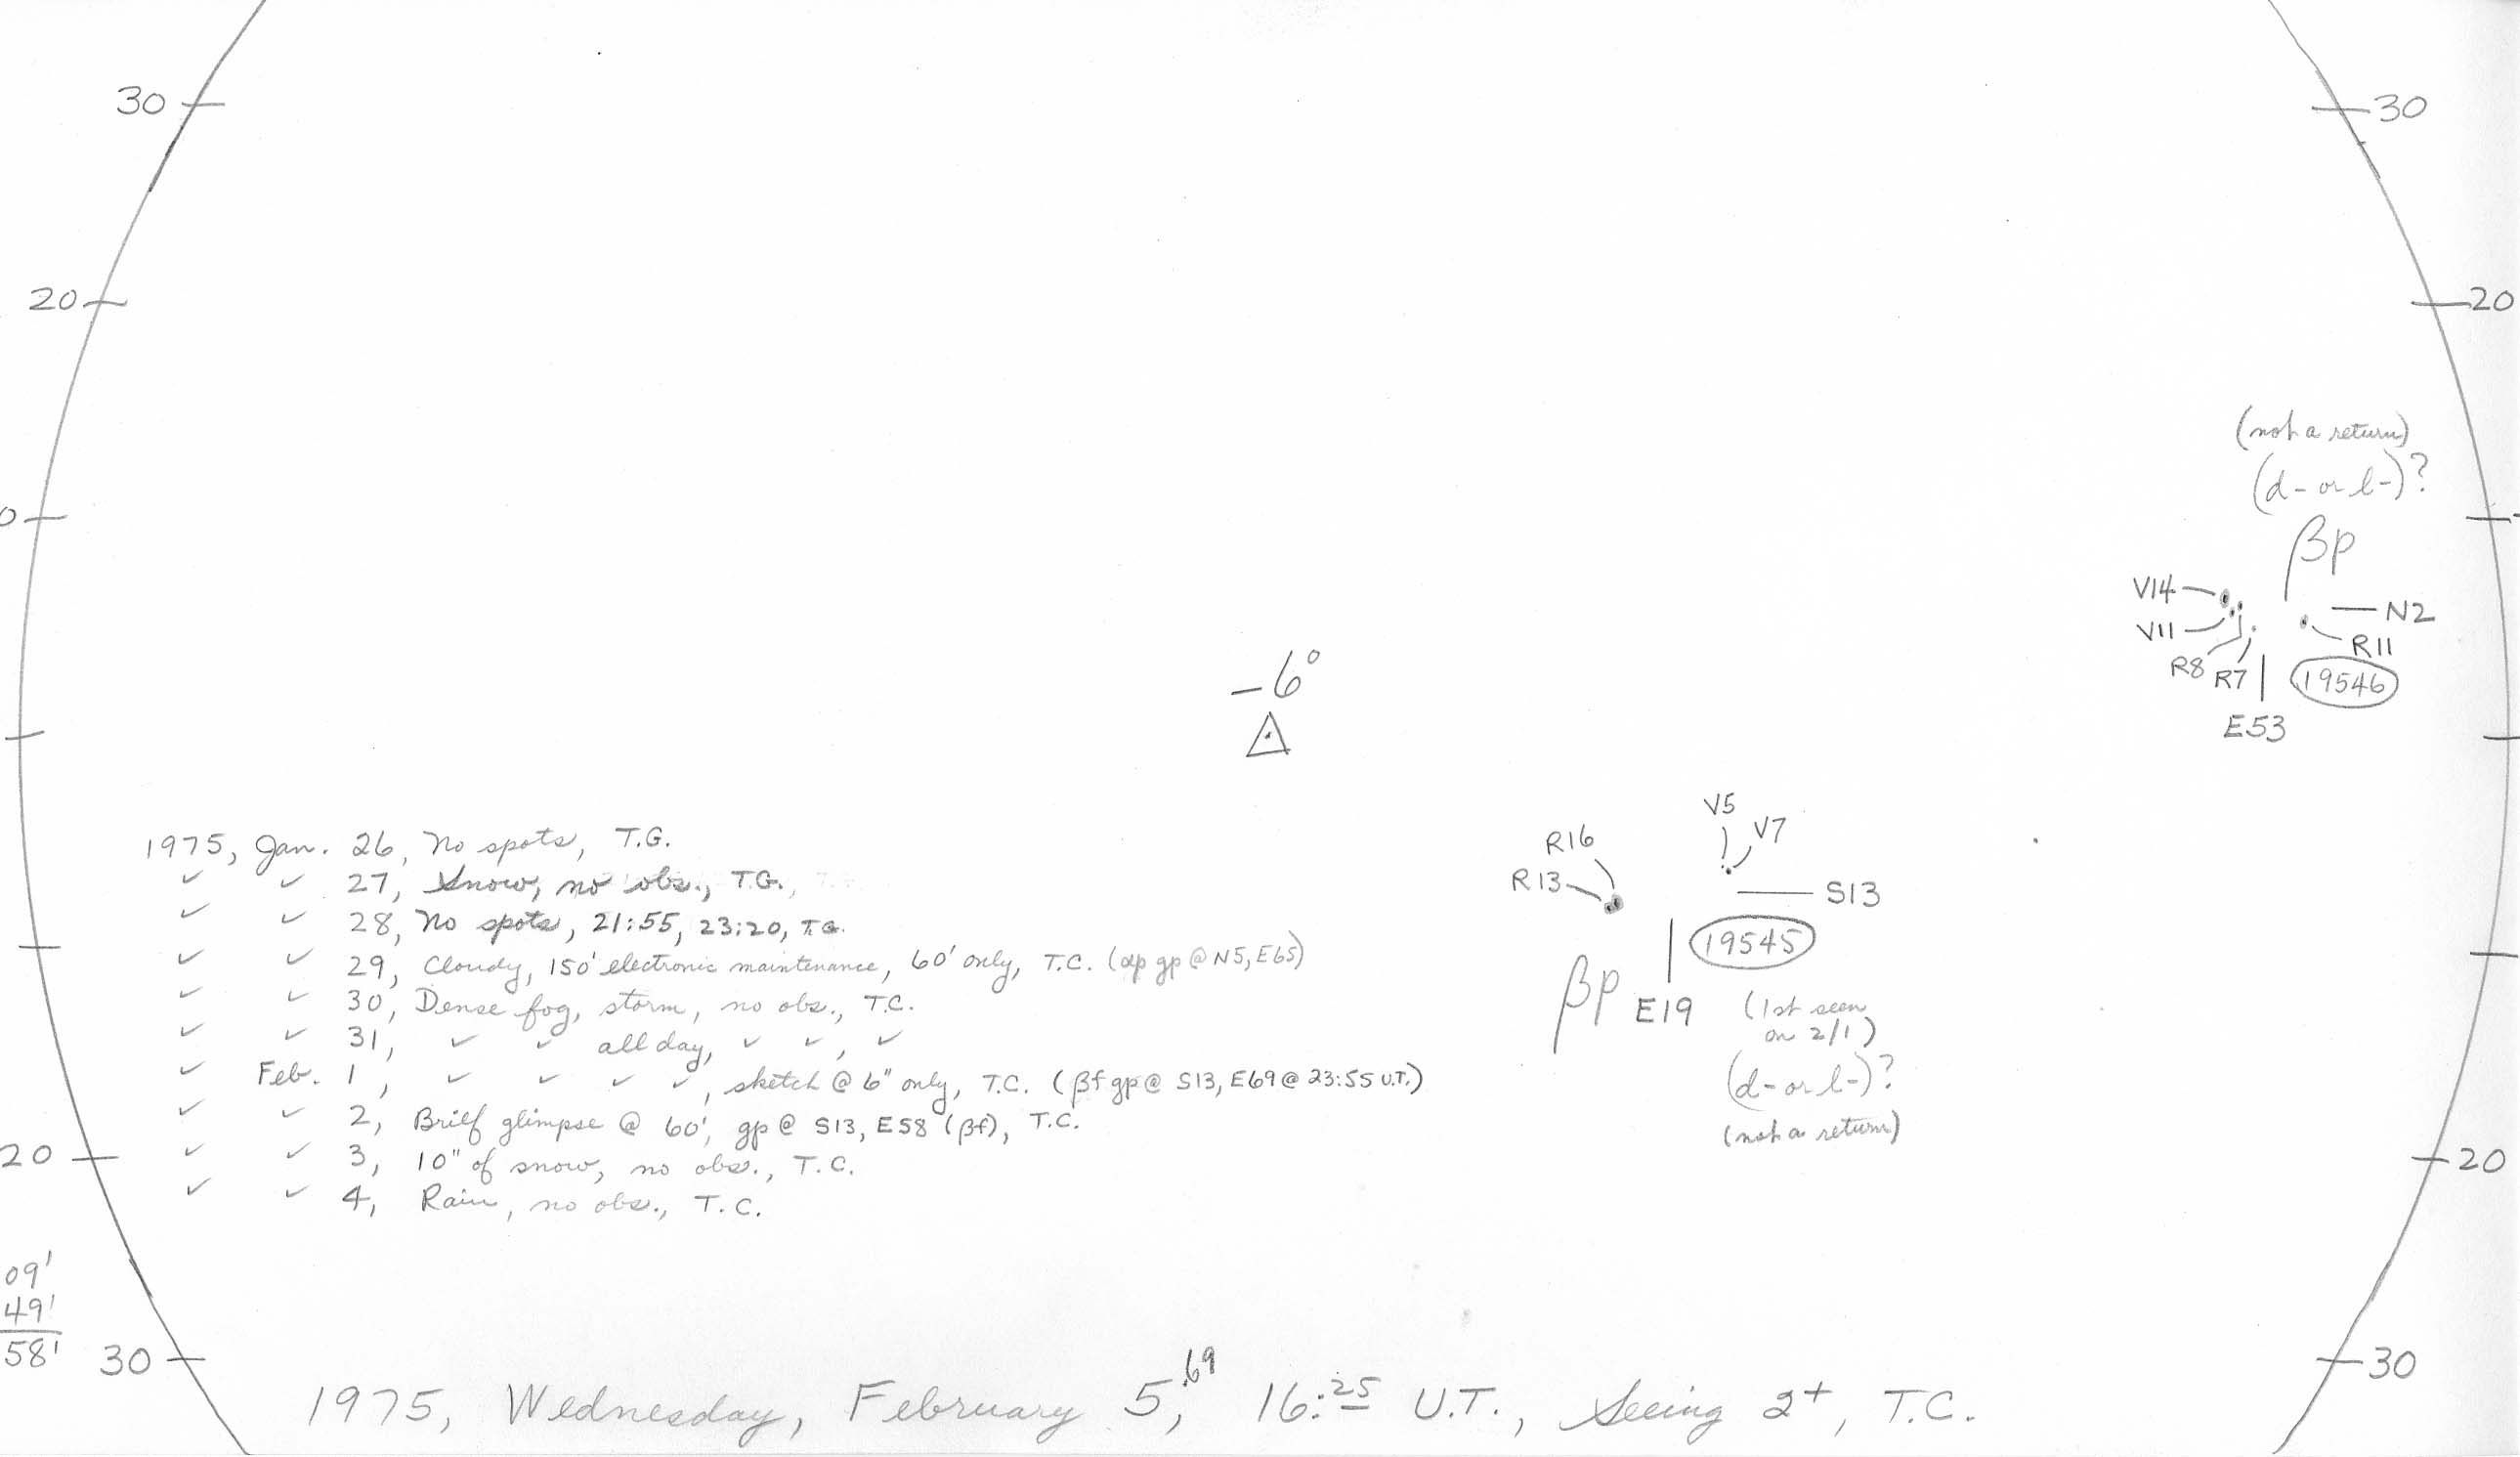 30
30
20
20
(not a return)
(d- or l-)?
0
βp
V14
N2
V11
R11
R8
R7
19546
E53
-6°
V5
V7
R16
R13
S13
19545
βp
E19
(1st seen
on 2/1)
(d- or l-)?
(not a return)
1975, Jan. 26, No spots, T.G.
✓ ✓ 27, Snow, no obs., T.G.,
✓ ✓ 28, No spots, 21:55, 23:20, T.G.
✓ ✓ 29, Cloudy, 150' electronic maintenance, 60' only, T.C. (αp gp @ N5, E65)
✓ ✓ 30, Dense fog, storm, no obs., T.C.
✓ ✓ 31, ✓ ✓ all day, ✓ ✓, ✓
✓ Feb. 1, ✓ ✓ ✓ ✓, sketch @ 6" only, T.C. (βf gp @ S13, E69 @ 23:55 U.T.)
✓ ✓ 2, Brief glimpse @ 60', gp @ S13, E58 (βf), T.C.
✓ ✓ 3, 10" of snow, no obs., T.C.
✓ ✓ 4, Rain, no obs., T.C.
20
20
09'
49'
58'
30
30
1975, Wednesday, February 5,.69 16:25 U.T., Seeing 2+, T.C.